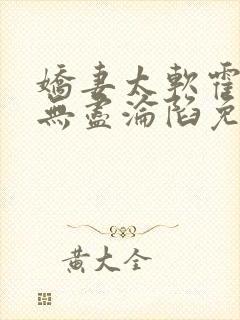 嬌妻太軟霍
無盡淪陷免
黃大全